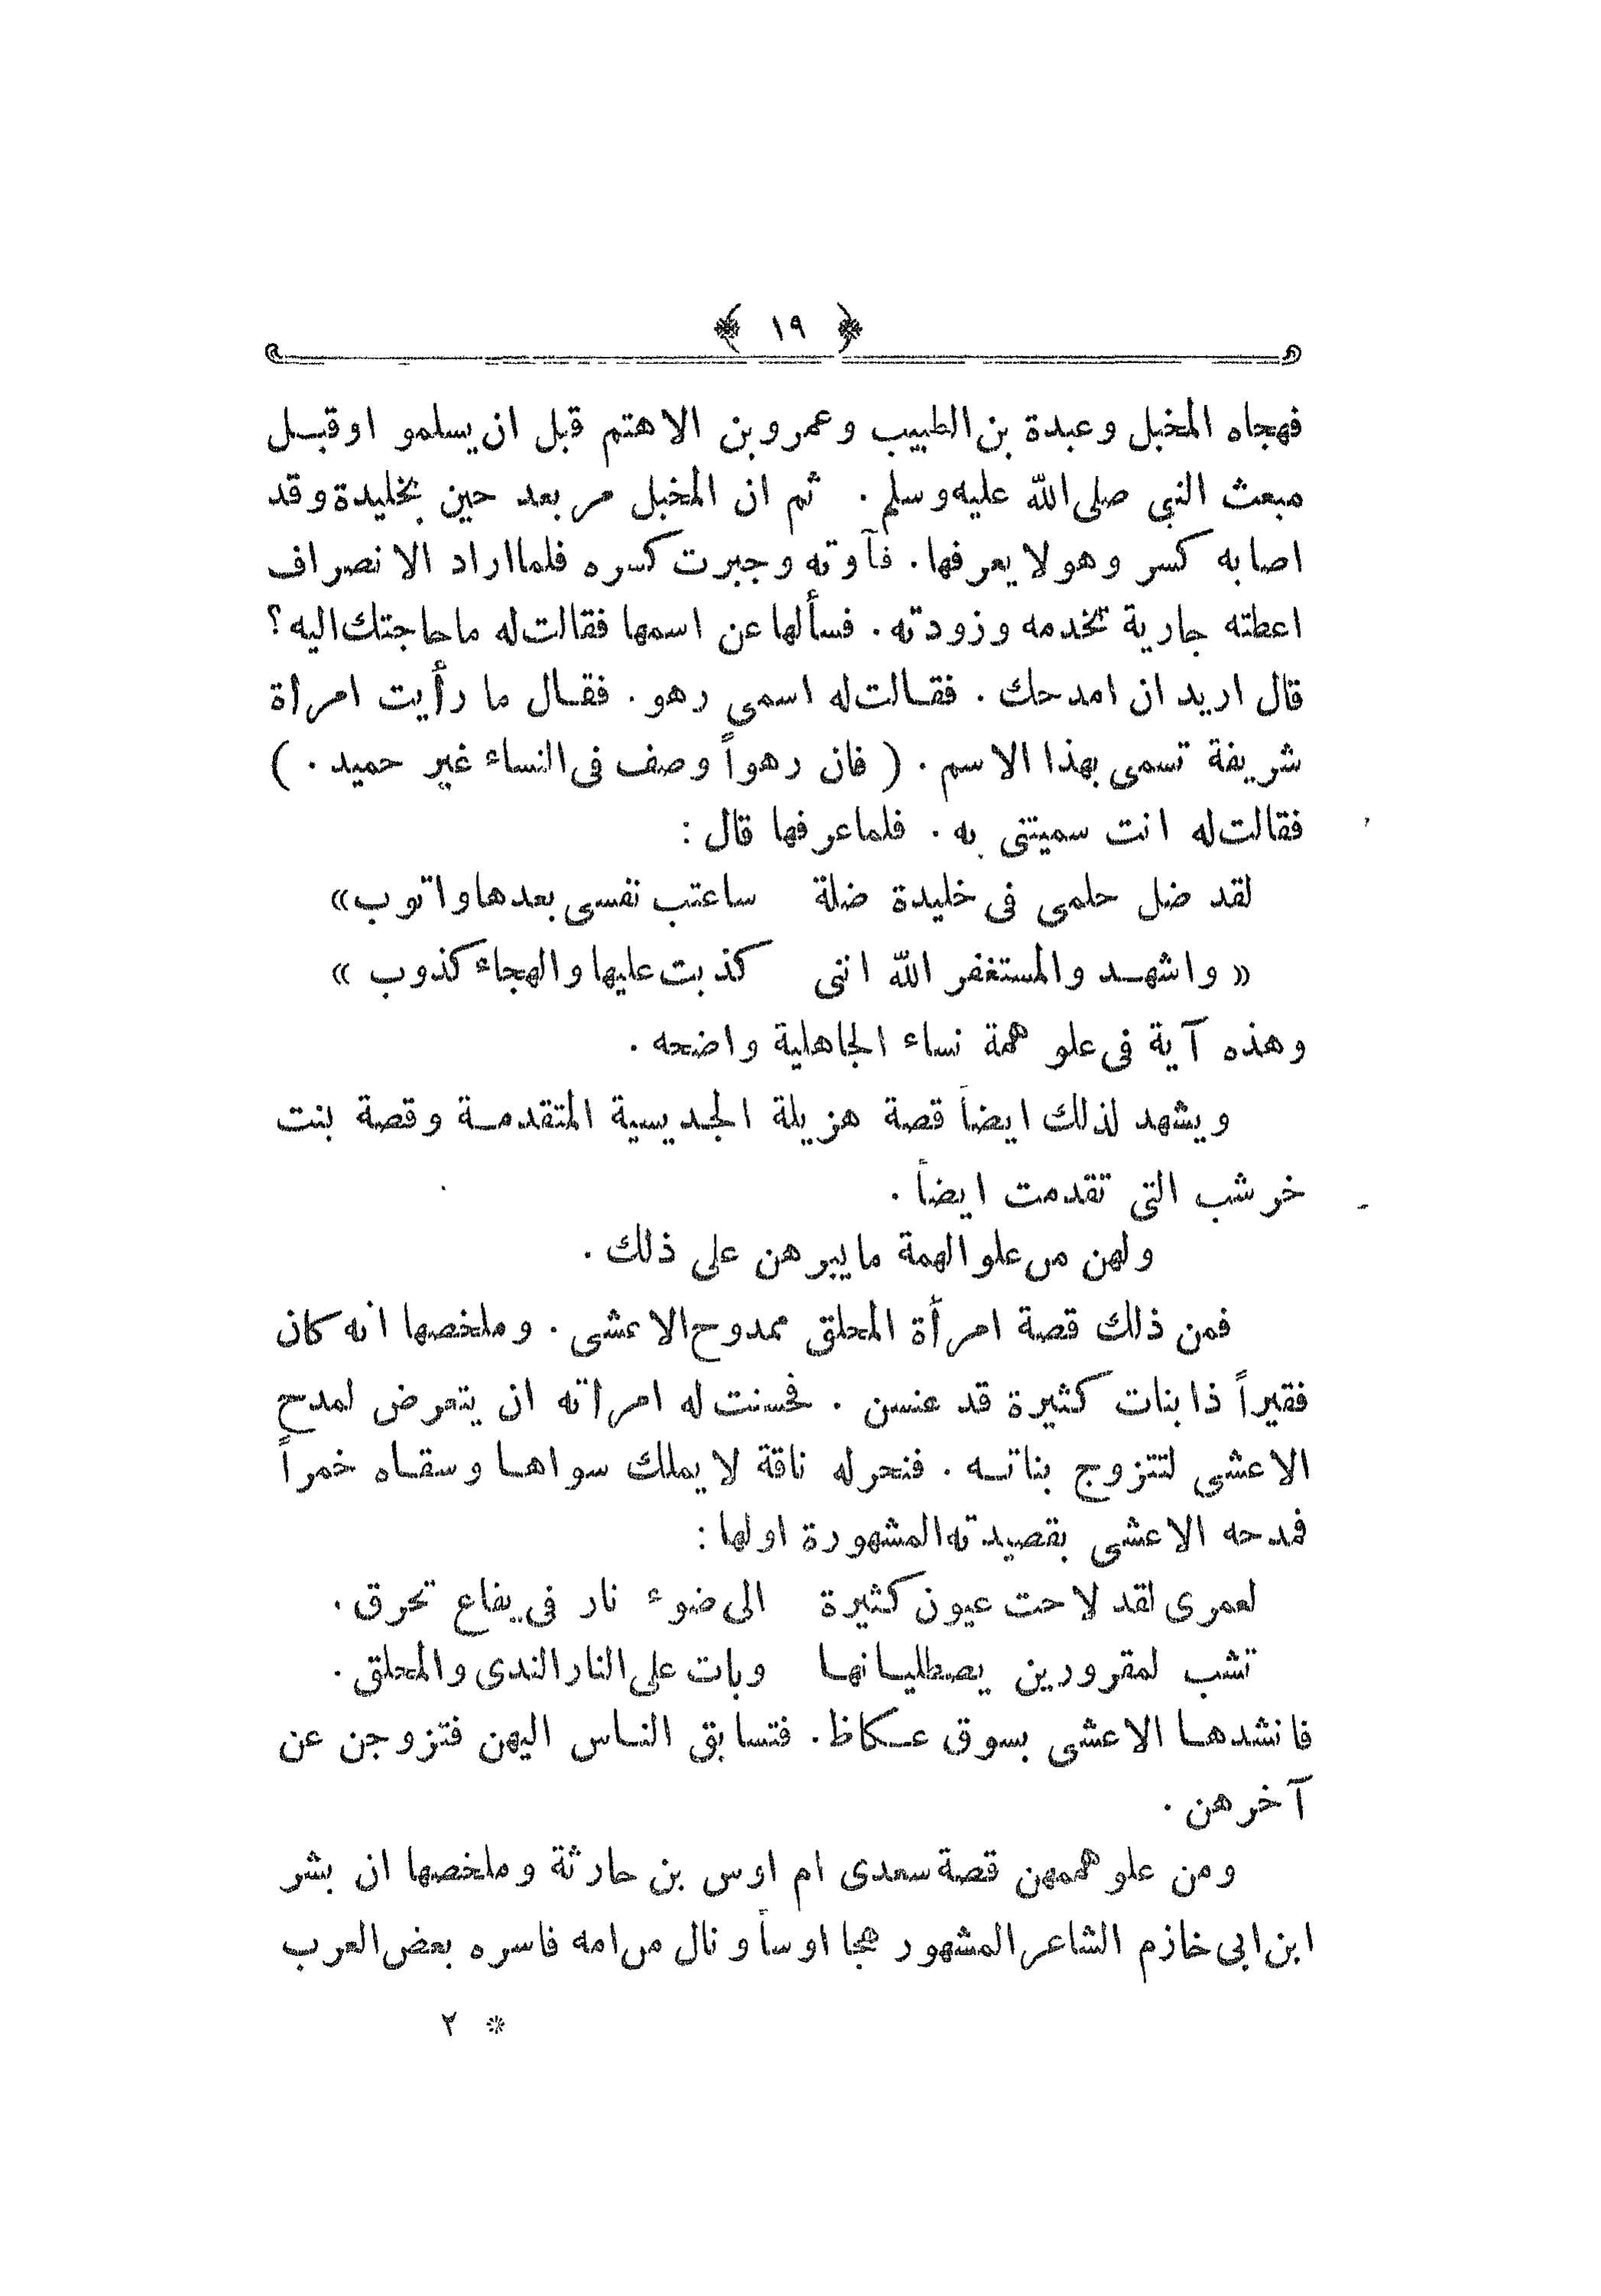 ﴿ ١٩ ﴾
فهجاه المخبل وعبدة بن الطبيب وعمرو بن الاهتم قبل ان يسلمو او قبل
مبعث النبى صلى الله عليه وسلم . ثم ان المخبل مر بعد حين بخليدة وقد
اصابه كسر وهو لا يعرفها . فآوته وجبرت كسره فلما اراد الانصراف
اعطته جارية تخدمه وزودته . فسألها عن اسمها فقالت له ما حاجتك اليه ؟
قال اريد ان امدحك . فقالت له اسمى رهو . فقال ما رأيت امرأة
شريفة تسمى بهذا الاسم . ( فان رهواً وصف فى النساء غير حميد . )
فقالت له انت سميتنى به . فلما عرفها قال :
لقد ضل حلمى فى خليدة ضلة ساعتب نفسى بعدها واتوب »
« واشهد والمستغفر الله اننى كذبت عليها والهجاء كذوب »
وهذه آية فى علو همة نساء الجاهلية واضحه .
ويشهد لذلك ايضاً قصة هزيلة الجديسية المتقدمة وقصة بنت
خرشب التى تقدمت ايضاً .
ولهن من علو الهمة ما يبرهن على ذلك .
فمن ذلك قصة امرأة المحلق ممدوح الاعشى . وملخصها انه كان
فقيراً ذا بنات كثيرة قد عنسن . فحسنت له امرأته ان يتعرض لمدح
الاعشى لتتزوج بناته . فنحر له ناقة لا يملك سواها وسقاه خمراً
فمدحه الاعشى بقصيدته المشهورة اولها :
لعمرى لقد لاحت عيون كثيرة الى ضوء نار فى يفاع تحرق .
تشب لمقرورين يصطليانها وبات على النار الندى والمحلق .
فانشدها الاعشى بسوق عكاظ . فتسابق الناس اليهن فتزوجن عن
آخرهن .
ومن علو هممهن قصة سعدى ام اوس بن حارثة وملخصها ان بشر
ابن ابى خازم الشاعر المشهور هجا اوساً ونال من امه فاسره بعض العرب
* ٢